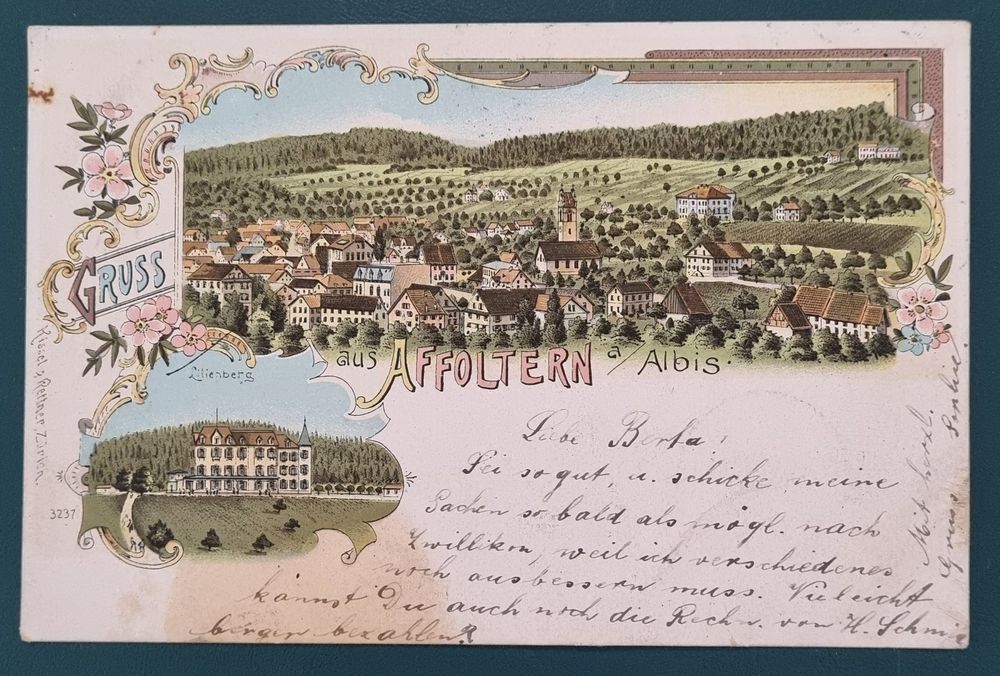 GRUSS
aus AFFOLTERN a/Albis.
Lilienberg
Kissel & Rettner, Zürich.
3237
Liebe Berta!
Sei so gut, u. schicke meine
Sachen so bald als mögl. nach
Zwillikon, weil ich verschiedenes
noch ausbessern muss. Vieleicht
kannst Du auch noch die Rechn. von H. Schmid
bezahlen?
Mit herzl.
Gruss Sophie.